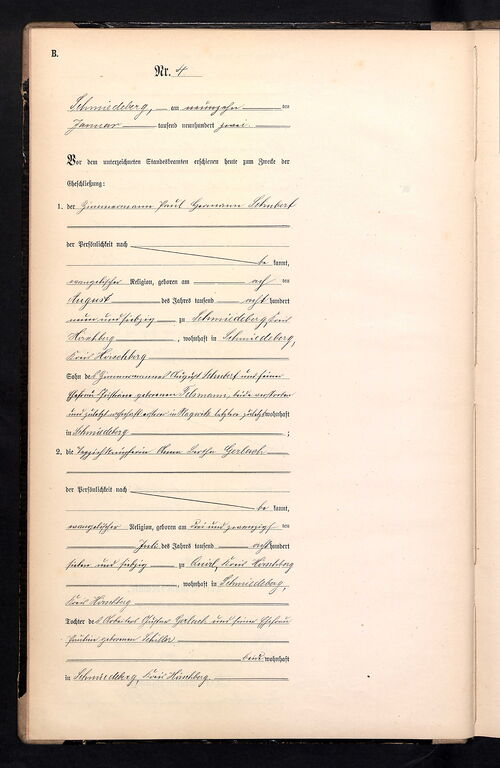 B.
Nr. 4
Schmiedeberg, am neunzehn ten
Januar tausend neunhundert zwei.
Vor dem unterzeichneten Standesbeamten erschienen heute zum Zwecke der
Eheschließung:
1. der Zimmermann Paul Hermann Schubert
der Persönlichkeit nach
be kannt,
evangelischer Religion, geboren am ach ten
August des Jahres tausend acht hundert
neun und siebzig zu Schmiedeberg, Kreis
Hirschberg, wohnhaft in Schmiedeberg,
Kreis Hirschberg
Sohn des Zimmermannes August Schubert und seiner
Ehefrau Christiane geborenen beide verstorben
und zuletzt wohnhaft
in Schmiedeberg ;
2. die Teppichknüpferin Anna Bertha Gerlach
der Persönlichkeit nach
be kannt,
evangelischer Religion, geboren am drei und zwanzigs ten
Juli des Jahres tausend acht hundert
sieben und siebzig zu Kreis Hirschberg
, wohnhaft in Schmiedeberg,
Kreis Hirschberg
Tochter des Arbeiters Gustav Gerlach und seiner Ehefrau
Pauline geborenen Schiller
wohnhaft
in Schmiedeberg, Kreis Hirschberg.